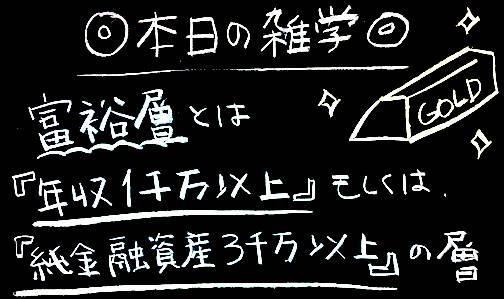 ◎本日の雑学◎
GOLD
富裕層とは
『年収1千万以上』もしくは、
『純金融資産3千万以上』の層